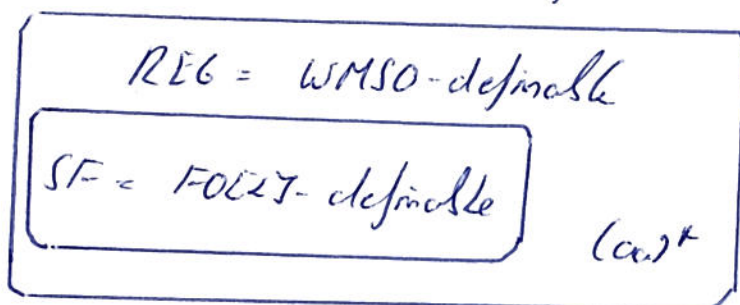 REG = WMSO-definable
SF = FO[<]-definable
(aa)*